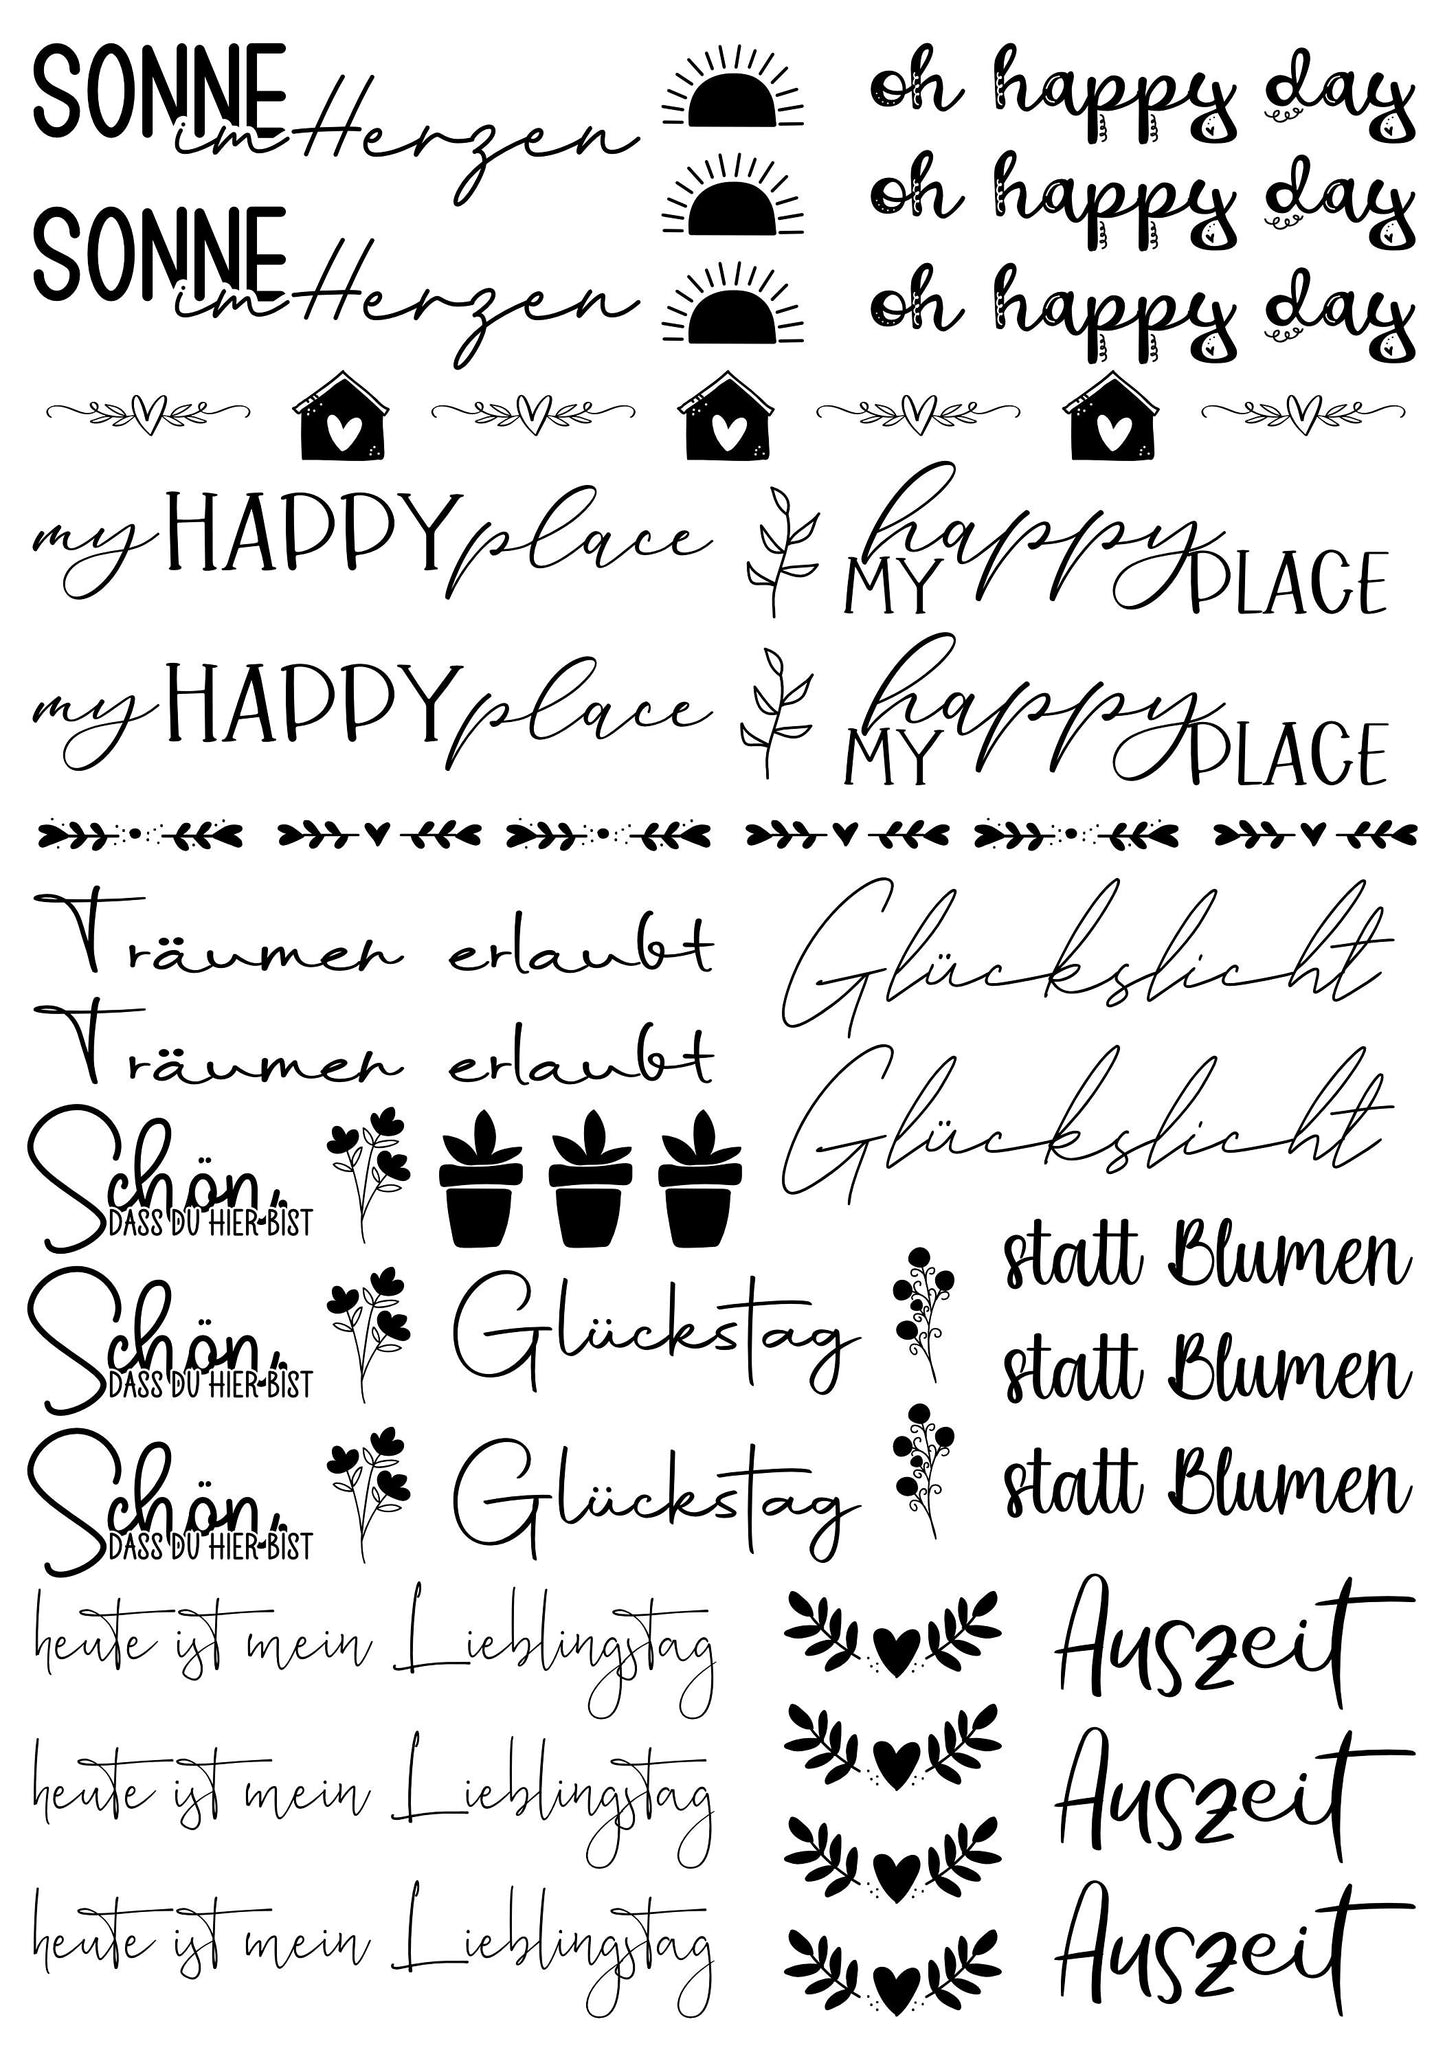 SONNE
im Herzen
oh happy day
oh happy day
SONNE
im Herzen
oh happy day
my HAPPY place
MY happy PLACE
my HAPPY place
MY happy PLACE
Träumen erlaubt
Glückslicht
Träumen erlaubt
Glückslicht
Schön,
DASS DU HIER BIST
statt Blumen
Schön,
DASS DU HIER BIST
Glückstag
statt Blumen
Schön,
DASS DU HIER BIST
Glückstag
statt Blumen
heute ist mein Lieblingstag
Auszeit
heute ist mein Lieblingstag
Auszeit
heute ist mein Lieblingstag
Auszeit